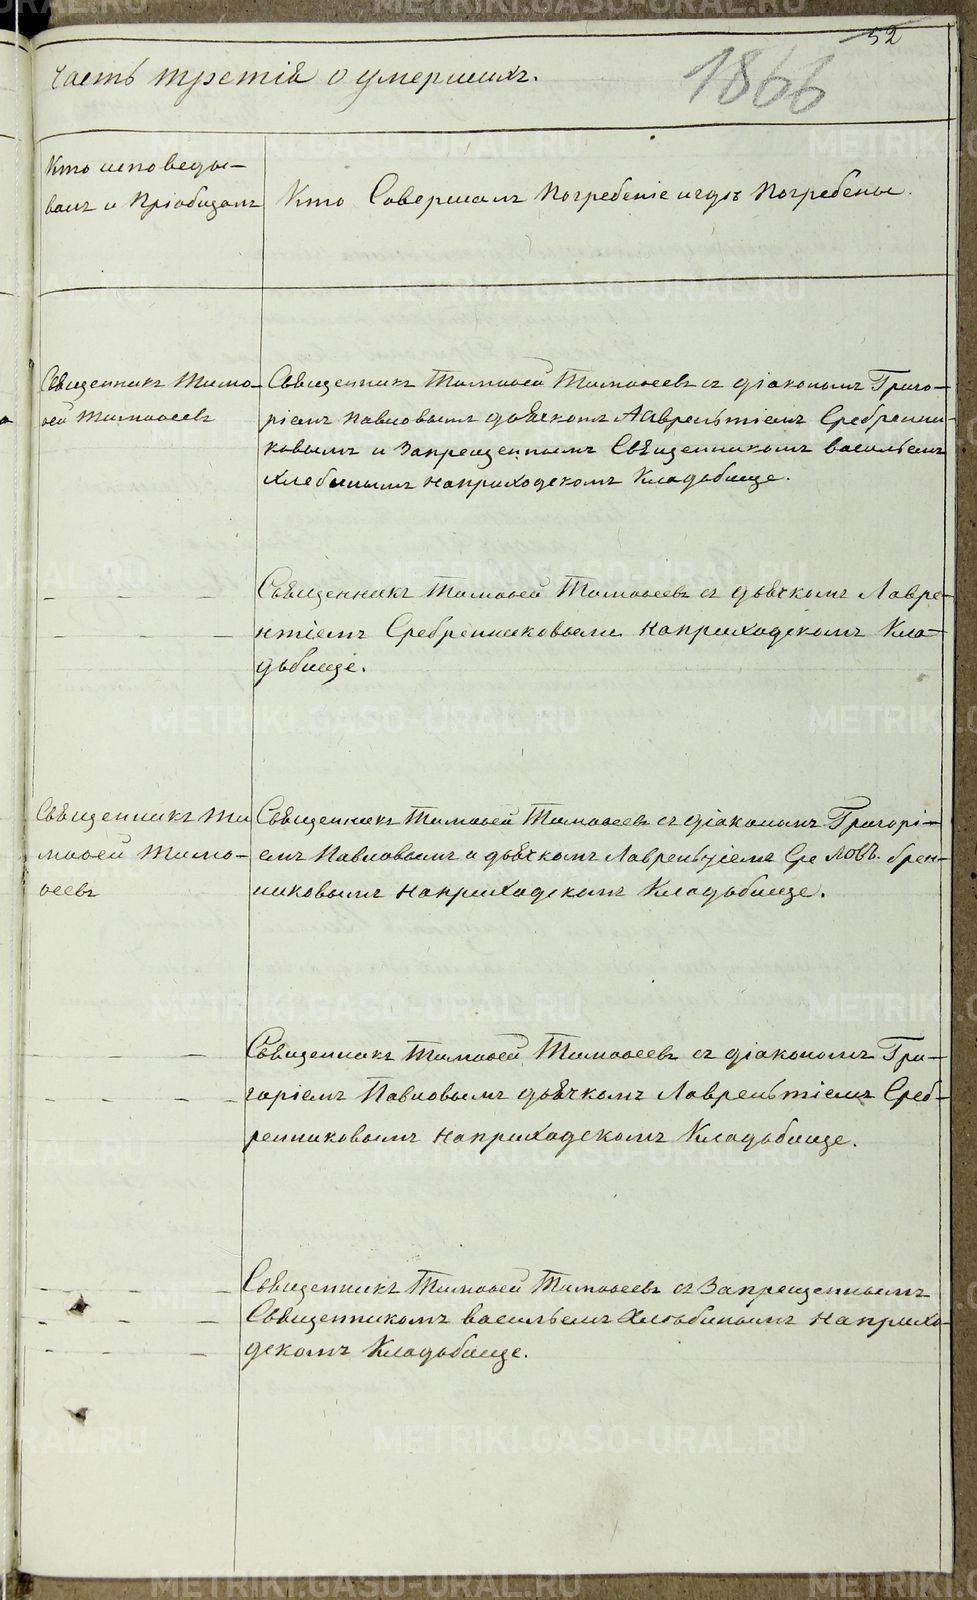 52
Часть третія о умершихъ.
1866
Кто исповеды-
валъ и Пріобщалъ
Кто Совершалъ Погребеніе и гдѣ Погребены.
Священникъ Тимо-
ѳей Тимоѳеевъ
Священникъ Тимоѳей Тимоѳеевъ съ діакономъ Григо-
ріемъ Павловымъ дьячкомъ Лаврентіемъ Сребренни-
ковымъ и Запрещеннымъ Священникомъ васильемъ
Хлебинымъ на приходскомъ Кладьбище.
Священникъ Тимоѳей Тимоѳеевъ съ дьячкомъ Лавре-
нтіемъ Сребренниковымъ на приходскомъ Кла-
дьбище.
Священникъ Ти
моѳей Тимо-
ѳеевъ
Священникъ Тимоѳей Тимоѳеевъ съ діакономъ Григорі-
емъ Павловымъ и дьячкомъ Лаврентіемъ Сре брен-
никовымъ на приходскомъ Кладьбище.
Священникъ Тимоѳей Тимоѳеевъ съ діакономъ Гри-
горіемъ Павловымъ дьячкомъ Лаврентіемъ Среб-
ренниковымъ на приходскомъ Кладьбище.
Священникъ Тимоѳей Тимоѳеевъ съ Запрещеннымъ
Священникомъ васильемъ Хлебинымъ на прихо-
дскомъ Кладьбище.
METRIKI.GASO-URAL.RU